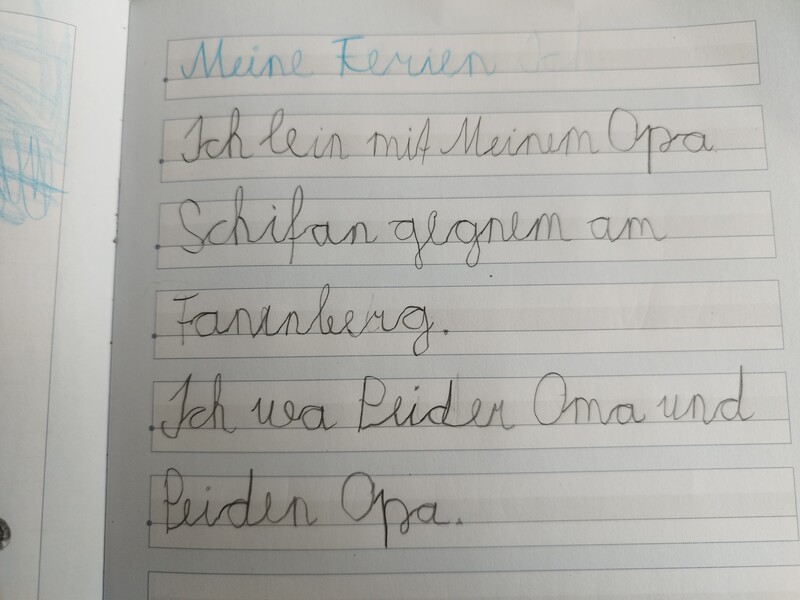 Meine Ferien
Ich lein mit Meinem Opa
Schifan gegnem am
Fanınberg.
Ich wa Beider Oma und
Beiden Opa.